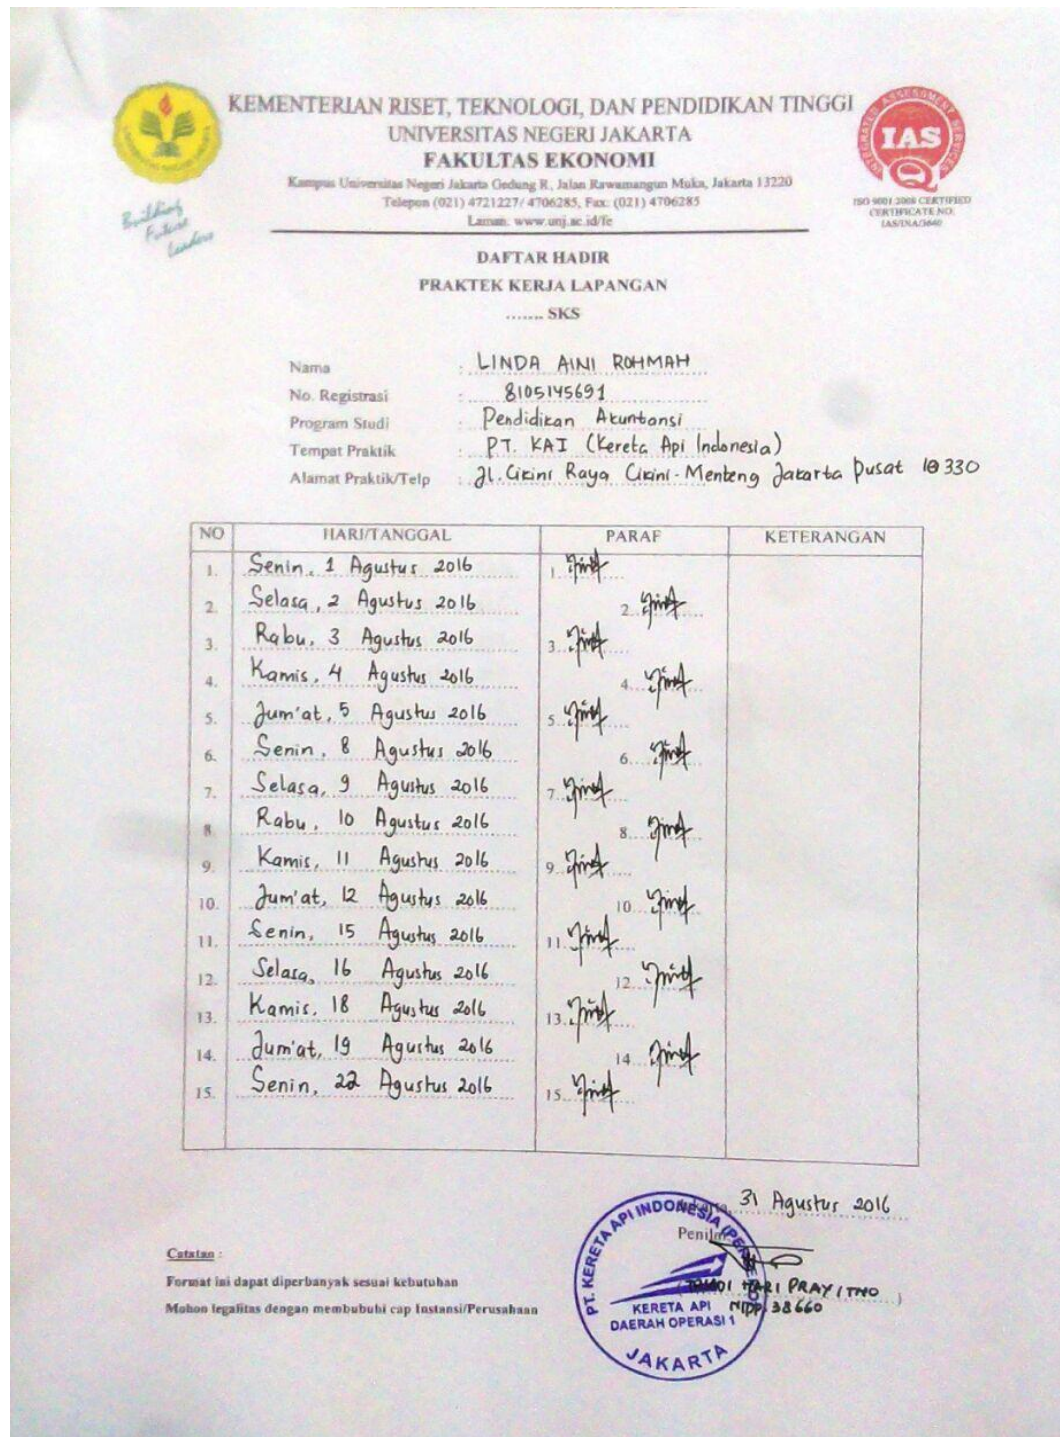 KEMENTERIAN RISET, TEKNOLOGI, DAN PENDIDIKAN TINGGI
UNIVERSITAS NEGERI JAKARTA
FAKULTAS EKONOMI
Kampus Universitas Negeri Jakarta Gedung R, Jalan Rawamangun Muka, Jakarta 13220
Telepon (021) 4721227/ 4706285, Fax: (021) 4706285
Laman: www.unj.ac.id/fe
Building
Future
Leaders
INTEGRATED ASSESSMENT SERVICES
IAS
ISO 9001:2008 CERTIFIED
CERTIFICATE NO:
IAS/INA/3640
DAFTAR HADIR
PRAKTEK KERJA LAPANGAN
....... SKS
Nama : LINDA AINI ROHMAH
No. Registrasi : 8105145691
Program Studi : Pendidikan Akuntansi
Tempat Praktik : PT. KAI (Kereta Api Indonesia)
Alamat Praktik/Telp : Jl. Cikini Raya Cikini - Menteng Jakarta Pusat 10330
NO HARI/TANGGAL PARAF KETERANGAN
1. Senin, 1 Agustus 2016 1.
2. Selasa, 2 Agustus 2016 2.
3. Rabu, 3 Agustus 2016 3.
4. Kamis, 4 Agustus 2016 4.
5. Jum'at, 5 Agustus 2016 5.
6. Senin, 8 Agustus 2016 6.
7. Selasa, 9 Agustus 2016 7.
8. Rabu, 10 Agustus 2016 8.
9. Kamis, 11 Agustus 2016 9.
10. Jum'at, 12 Agustus 2016 10.
11. Senin, 15 Agustus 2016 11.
12. Selasa, 16 Agustus 2016 12.
13. Kamis, 18 Agustus 2016 13.
14. Jum'at, 19 Agustus 2016 14.
15. Senin, 22 Agustus 2016 15.
31 Agustus 2016
HARI PRAYITNO
NIPP. 38660
PT. KERETA API INDONESIA
KERETA API
DAERAH OPERASI 1
JAKARTA
Catatan :
Format ini dapat diperbanyak sesuai kebutuhan
Mohon legalitas dengan membubuhi cap Instansi/Perusahaan